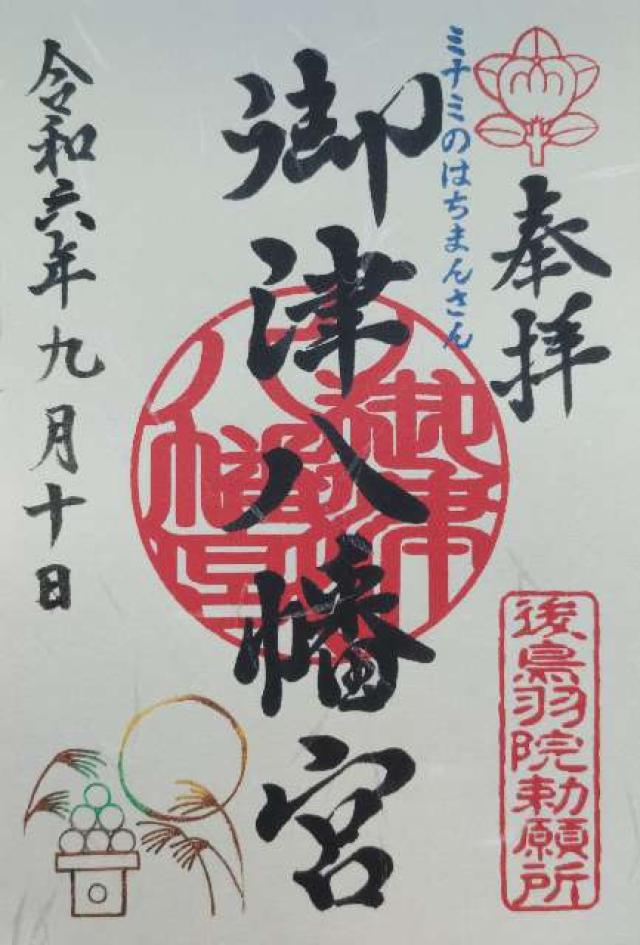 奉拝
ミナミのはちまんさん
御津八幡宮
御津八幡宮
令和六年九月十日
後鳥羽院勅願所